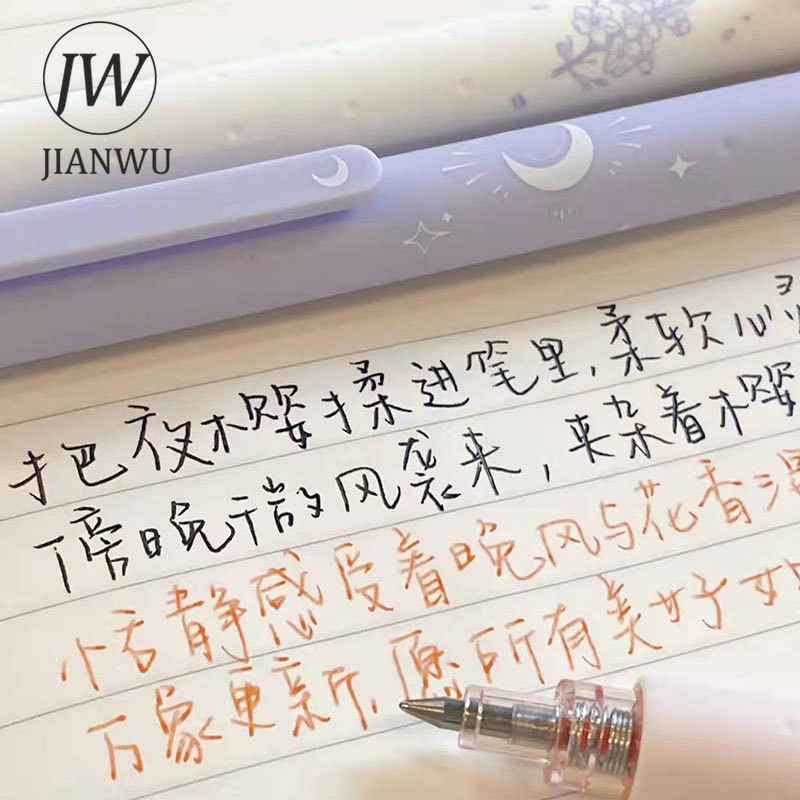 JW
JIANWU
把夜樱揉进笔里,柔软心灵
傍晚微风袭来,夹杂着樱
恬静感受着晚风与花香
万象更新,愿所有美好